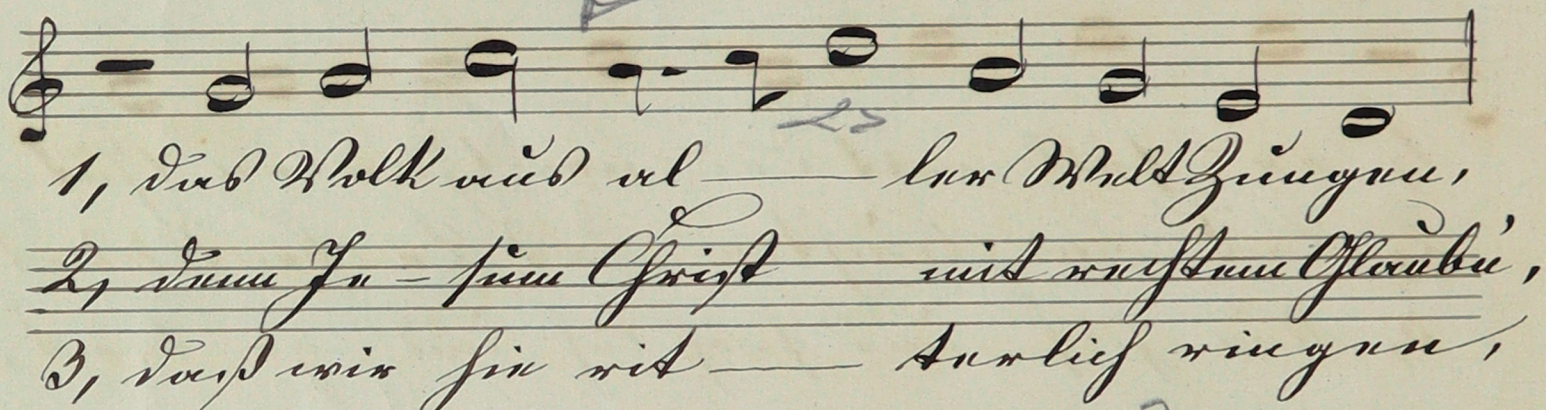 1, das Volk aus al — ler Welt Zungen,
2, denn Je - sum Christ mit rechtem Glaubn',
3, daß wir hie rit — terlich ringen,